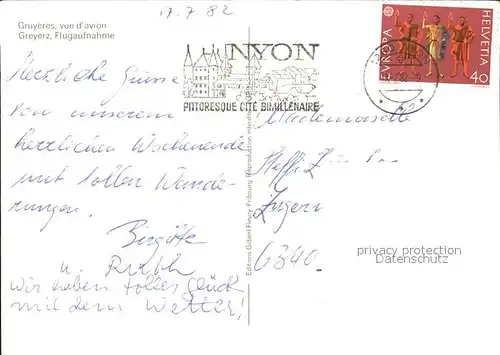 17.7.82
Gruyères, vue d'avion
Greyerz, Flugaufnahme
NYON
PITTORESQUE CITÉ BIMILLÉNAIRE
EUROPA
HELVETIA
40
Herzliche Grüsse
von unserem
herrlichen Wochenende
mit tollen Wande-
rungen.
Birgitte
u.
Wir haben tolles Glück
mit dem Wetter!
Editions Gilbert Fleury, Fribourg Reproduction interdite
Mademoiselle
Steffi
6340
privacy protection
Datenschutz